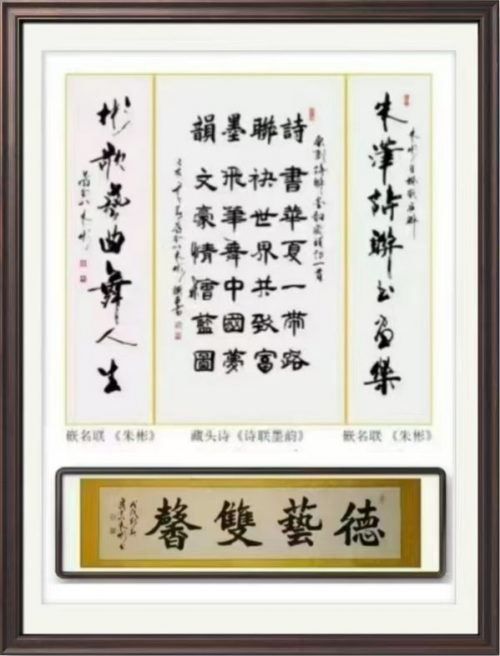 朱澤詩聯書畫集
詩書華夏一帶路
聯袂世界共致富
墨飛筆舞中國夢
韻文豪情繪藍圖
彬歌藝曲舞人生
嵌名联 《朱彬》
藏头诗《诗联墨韵》
嵌名联 《朱彬》
德藝雙馨